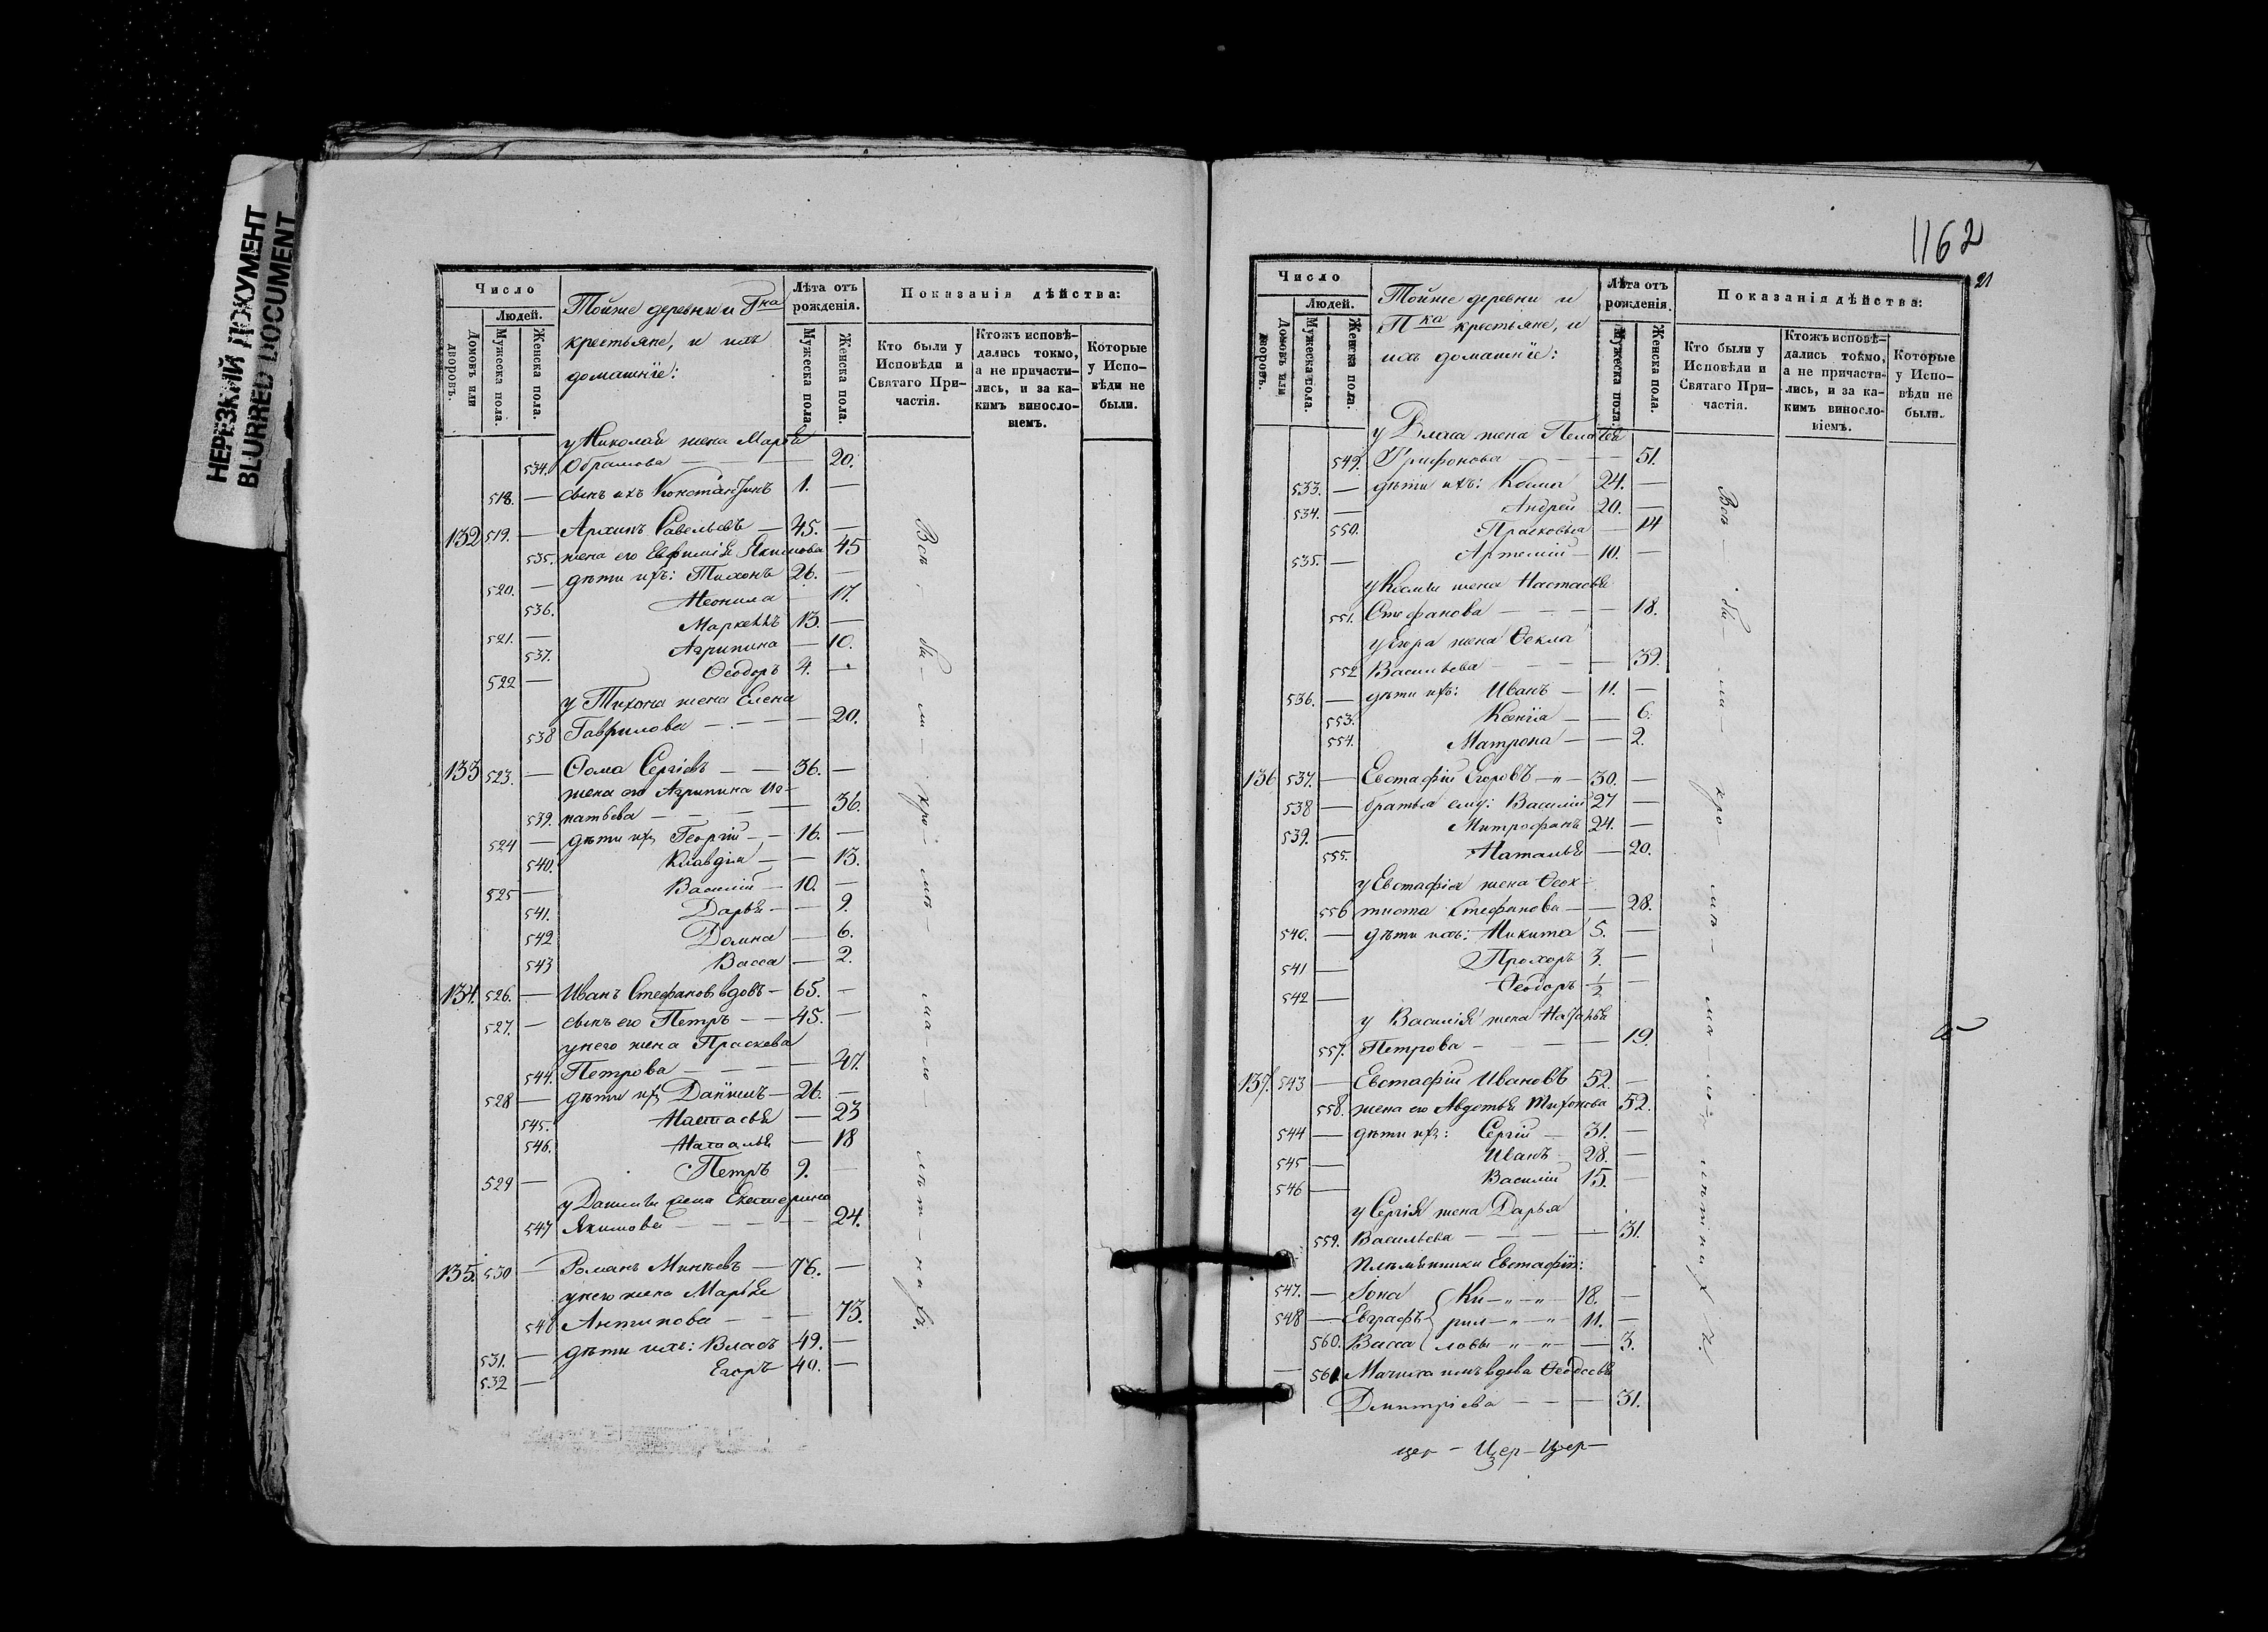 НЕРЕЗКИЙ ДОКУМЕНТ
BLURRED DOCUMENT
Число
Людей.
Домовъ или дворовъ.
Мужеска пола.
Женска пола.
Тойже деревни и
крестьяне, и ихъ
домашніе:
Лѣта отъ рожденія.
Мужеска пола.
Женска пола.
Показанія дѣйства:
Кто были у Исповѣди и Святаго При-
частія.
Ктожъ исповѣ-
дались токмо,
а не причасти-
лись, и за ка-
кимъ винosло-
віемъ.
Которые
у Испо-
вѣди не
были.
у Николая жена Марья
534. Обрамова — 20.
518. — сынъ ихъ Константинъ 1. —
132 519. — Архипъ Савельевъ — 45. —
535. жена его Евфимія Якимова 45
520. — дѣти ихъ: Тихонъ 26. —
536. Неонила — 17.
521. — Маркеллъ 13. —
537. Агрипина — 10.
522 — Ѳеодоръ 4. —
у Тихона жена Елена
538 Гаврилова — 20.
133 523. — Ѳома Сергіевъ — 36. —
жена его Агрипина Иг-
539. натьева — 36.
524 — дѣти ихъ Георгій — 16. —
540. Клавдія — 13.
525 — Василій — 10. —
541. Дарья — 9.
542 Домна — 6.
543 Васса — 2.
134. 526. — Иванъ Стефановъ вдовъ — 65. —
527. — сынъ его Петръ — 45. —
у него жена Праскева
544. Петрова — 47.
528 — дѣти ихъ Даніилъ — 26. —
545. Настасья — 23
546. Наталья — 18
529 — Петръ 9. —
у Даніила жена Екатерина
547 Якимова — 24.
135. 530 — Романъ Минѣевъ — 76. —
у него жена Марья
548 Антипова — 73.
531. — дѣти ихъ: Власъ 49. —
532 — Егоръ 40. —
Всѣ — бы — ли — кро — мѣ — ма — ло — лѣт — ныхъ.
1162
21
Число
Людей.
Домовъ или дворовъ.
Мужеска пола.
Женска пола.
Тойже деревни и
П ка крестьяне, и
ихъ домашніе:
Лѣта отъ рожденія.
Мужеска пола.
Женска пола.
Показанія дѣйства:
Кто были у
Исповѣди и
Святаго При-
частія.
Ктожъ исповѣ-
дались токмо,
а не причасти-
лись, и за ка-
кимъ винocло-
віемъ.
Которые
у Испо-
вѣди не
были.
у Власа жена Пелагея
549. Трифонова — 51.
533. — дѣти ихъ: Косма 24. —
534. — Андрей 20. —
550. Прасковья — 14
535. — Артемій — 10. —
у Космы жена Настасья
551. Стефанова — 18.
у Егора жена Ѳекла
552 Васильева — 39.
536. — дѣти ихъ: Иванъ — 11. —
553. Ксенія — 6.
554. Матрона — 2.
136 537. — Евстафій Егоровъ — 30. —
538 — братья ему: Василій 27 —
539. — Митрофанъ 24. —
555. Наталья — 20.
у Евстафія жена Ѳеок-
556 тиста Стефанова — 28.
540. — дѣти ихъ: Никита 5. —
541 — Прохоръ 3. —
542 — Ѳеодоръ 1/2 —
у Василія жена Наталья
557. Петрова — 19.
137. 543 — Евстафій Ивановъ 52. —
558. жена его Авдотья Тихонова 52.
544 — дѣти ихъ: Сергій — 31. —
545 — Иванъ — 28. —
546 — Василій 15. —
у Сергія жена Дарья
559. Васильева — 31.
племянники Евстафія:
547. — Іона Ки- 18. —
548 — Евграфъ рил- 11. —
560. Васса ловы — 3.
561 Мачиха имъ вдова Ѳеодосья
Димитріева — 31.
Всѣ — бы — ли — кро — мѣ — ма — ло — лѣтныхъ.
цер — Цер — Цер —